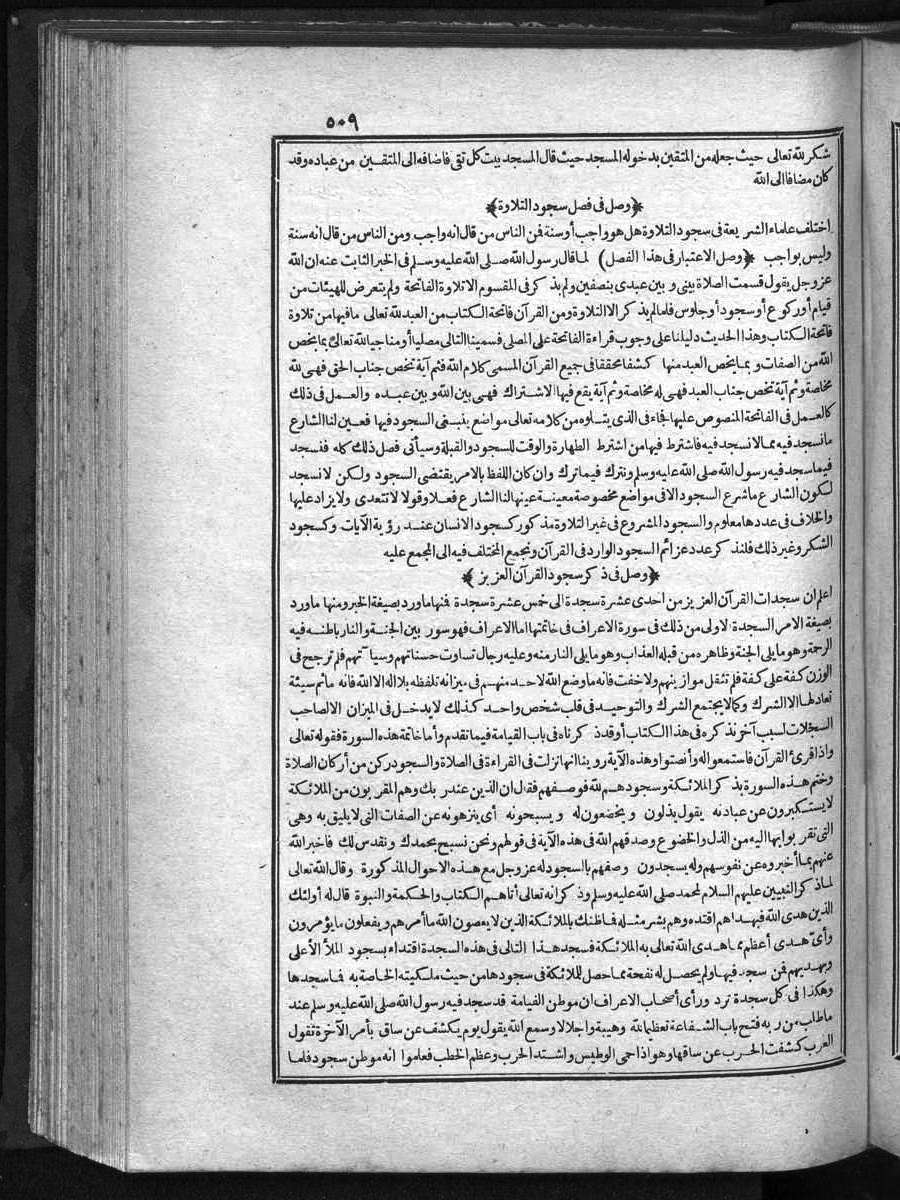 ٥٠٩
شكر لله تعالى حيث جعله من المتقين بدخوله المسجد حيث قال المسجد بيت كل تقى فاضافه الى المتقين من عباده وقد
كان مضافا الى الله
﴿وصل فى فصل سجود التلاوة﴾
اختلف علماء الشريعة فى سجود التلاوة هل هو واجب أوسنة فمن الناس من قال انه واجب ومن الناس من قال انه سنة
وليس بواجب ﴿وصل الاعتبار فى هذا الفصل) لما قال رسول الله صلى الله عليه وسلم فى الخبر الثابت عنه ان الله
عز وجل يقول قسمت الصلاة بينى وبين عبدى بنصفين ولم يذكر فى المقسوم الاتلاوة الفاتحة ولم يتعرض للهيئات من
قيام أوركوع أوسجود أوجلوس فلما لم يذكر الا التلاوة ومن القرآن فاتحة الكتاب من العبد لله تعالى مافيها من تلاوة
فاتحة الكتاب وهذا الحديث دليلنا على وجوب قراءة الفاتحة على المصلى فسمينا التالى مصليا أومناجيا لله تعالى بما يخص
الله من الصفات وبما يخص العبد منها كشفا محققا فى جميع القرآن المسمى كلام الله فثم آية تخص جناب الحق فهى لله
مخاصة وثم آية تخص جناب العبد فهى له مخاصة وثم آية يقع فيها الاشتراك فهى بين الله وبين عبده والعمل فى ذلك
كالعمل فى الفاتحة المنصوص عليها فجاء فى الذى يتلوه من كلامه تعالى مواضع ينبغى السجود فيها فعين لنا الشارع
مانسجد فيه مما لانسجد فيه فاشترط فيها من اشترط الطهارة والوقت للسجود والقبلة وسيأتى فصل ذلك كله فنسجد
فيما سجد فيه رسول الله صلى الله عليه وسلم ونترك فيما ترك وان كان اللفظ بالامر يقتضى السجود ولكن لانسجد
لكون الشارع ماشرع السجود الافى مواضع مخصوصة معينة عينها لنا الشارع فعلا وقولا لاتتعدى ولا يزاد عليها
والخلاف فى عددها معلوم والسجود المشروع فى غير التلاوة مذكور كسجود الانسان عند رؤية الآيات وكسجود
الشكر وغير ذلك فلنذكر عدد عزائم السجود الوارد فى القرآن ونجمع المختلف فيه الى المجمع عليه
﴿وصل فى ذكر سجود القرآن العزيز﴾
اعلم ان سجدات القرآن العزيز من احدى عشرة سجدة الى خمس عشرة سجدة فمنها ماورد بصيغة الخبر ومنها ماورد
بصيغة الامر السجدة لاولى من ذلك فى سورة الاعراف فى خاتمتها اما الاعراف فهو سور بين الجنة والنار باطنه فيه
الرحمة وهو مايلى الجنة وظاهره من قبله العذاب وهو مايلى النار منه وعليه رجال تساوت حسناتهم وسيا تهم فلم ترجح فى
الوزن كفة على كفة فلم تثقل موازينهم ولاخفت فانه ماوضع الله لاحد منهم فى ميزانه تلفظه بلا اله الا الله فانه ماثم سيئة
تعادلها الا الشرك وكما لايجتمع الشرك والتوحيد فى قلب شخص واحد كذلك لايدخل فى الميزان الالصاحب
السجلات لسبب آخر نذكره فى هذا الكتاب أوقد ذكرناه فى باب القيامة فيما تقدم وأما خاتمة هذه السورة فقوله تعالى
واذا قرئ القرآن فاستمعوا له وأنصتوا وهذه الآية روينا انها نزلت فى القراءة فى الصلاة والسجود ركن من أركان الصلاة
وختم هذه السورة بذكر الملائكة وسجودهم لله فوصفهم فقال ان الذين عند ربك وهم المقربون من الملائكة
لايستكبرون عن عبادته يقول يذلون ويخضعون له ويسبحونه أى ينزهونه عن الصفات التى لايليق به وهى
التى تقربوا بها اليه من الذل والخضوع وصدقهم الله فى هذه الآية فى قولهم ونحن نسبح بحمدك ونقدس لك فاخبر الله
عنهم بما أخبروه عن نفوسهم وله يسجدون وصفهم بالسجود له عز وجل مع هذه الاحوال المذكورة وقال الله تعالى
لما ذكر النبيين عليهم السلام لمحمد صلى الله عليه وسلم وذكر انه تعالى أتاهم الكتاب والحكمة والنبوة قال له أولئك
الذين هدى الله فبهداهم اقتده وهم بشر مثله فما ظنك بالملائكة الذين لايعصون الله ما أمرهم ويفعلون مايؤمرون
وأى هدى أعظم مما هدى الله تعالى به الملائكة فسجد هذا التالى فى هذه السجدة اقتداء بسجود الملأ الأعلى
وبهديهم فمن سجد فيها ولم يحصل له نفحة مما حصل للملائكة فى سجودها من حيث ملكيته الخاصة به فما سجدها
وهكذا فى كل سجدة ترد ورأى أصحاب الاعراف ان موطن القيامة قد سجد فيه رسول الله صلى الله عليه وسلم عند
ماطلب من ربه فتح باب الشفاعة تعظيما لله وهيبة واجلالا وسمع الله يقول يوم يكشف عن ساق يأمر الآخرة تقول
العرب كشفت الحرب عن ساقها وهو اذا حمى الوطيس واشتد الحرب وعظم الخطب فعلموا انه موطن سجود فلما